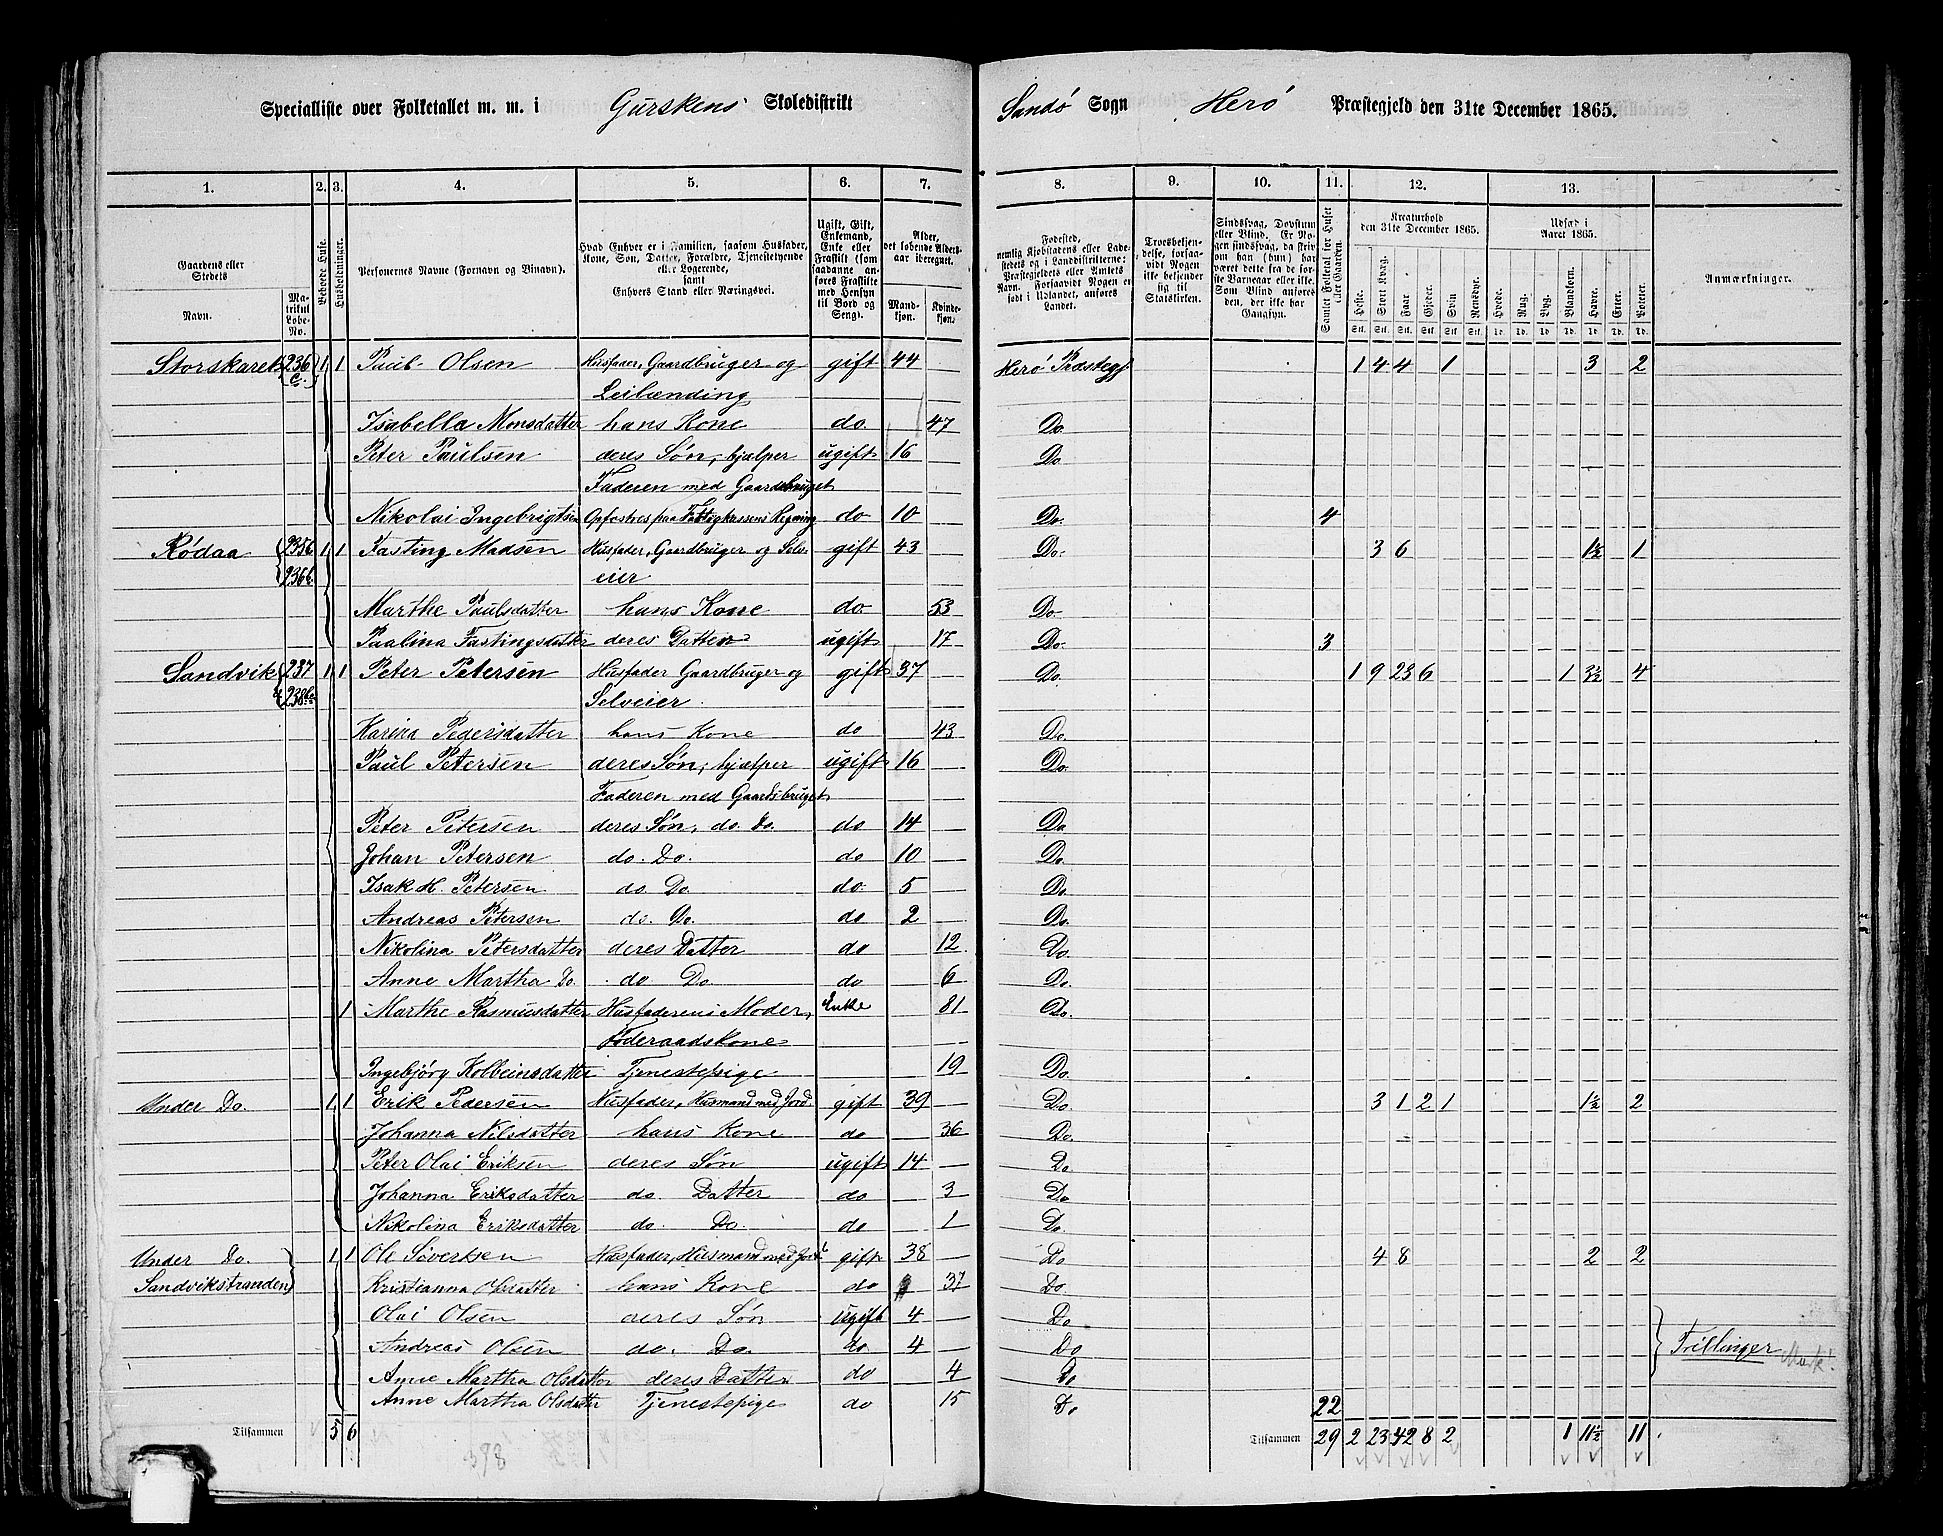 Specialliste over Folketallet m. m. i Gurskens Skoledistrikt Sandö Sogn Herö Præstegjeld den 31te December 1865.
1. 2. 3. 4. 5. 6. 7. 8. 9. 10. 11. 12. 13.
Gaardens eller Stedets Navn. Matrikul Løbe-No. Beboede Huse. Husholdninger. Personernes Navne (Fornavn og Tilnavn). Hvad Enhver er i Familien, saasom Husfader, Kone, Søn, Datter, Forældre, Tjenestetyende eller Logerende, samt Enhvers Stand eller Næringsvei. Ugift, Gift, Enkemand, Enke eller Fraskilt (som saadanne anføres Fraskilte med Hensyn til Bord og Seng). Alder, det løbende Aldersaar iberegnet. Mandkjøn. Kvindekjøn. Fødested, nemlig Kjøbstadens eller Ladestedets og i Landdistrikterne: Præstegjeldets eller Amtets Navn. Forsaavidt Nogen er født i Udlandet, anføres Landet. Troesbekjendelse, forsaavidt Nogen ikke bekjender sig til Statskirken. Sindssvag, Døvstum eller Blind. Er Nogen sindssvag, da skriv om han (hun) har været dette fra de første Barneaar eller ikke. Som Blind anføres den, der ikke har Gangsyn. Samlet Folketal for Huset eller Gaarden. Kreaturhold den 31te December 1865. Heste. Stort Kvæg. Faar. Gjeder. Svin. Rensdyr. Udsæd i Aaret 1865. Hvede. Rug. Byg. Blandkorn. Havre. Erter. Poteter. Anmærkninger.
Storskaret 236 c. 1 1 Paul Olsen Husfader, Gaardbruger og gift 44 Herö Præstegj 1 4 4 1 3 2
Leilænding
Isabella Monsdatter hans Kone do. 47 Do.
Peter Paulsen deres Søn, hjælper ugift 16 Do
Faderen med Gaardsbruget
Nikolai Ingebrigtsen Opfostres paa Fattigkassens Regning do 10 Do. 4
Rödaa 235b 1 1 Fasting Madsen Husfader, Gaardbruger og Selv- gift 43 Do. 3 6 1½ 1
236b eier
Marthe Paulsdatter hans Kone do 53 Do.
Paalina Fastingsdatter deres Datter ugift 17 Do. 3
Sandvik 237 1 1 Peter Petersen Husfader Gaardbruger og gift 37 Do. 1 9 23 6 1 3½ 4
& 238 Selveier
Karina Pedersdatter hans Kone do 43 Do.
Paul Petersen deres Søn, hjælper ugift 16 Do.
Faderen med Gaardsbruget
Peter Petersen deres Søn, do. Do. do 14 Do
Johan Petersen do. Do. do 10 Do.
Isak H. Petersen do. Do do. 5 Do.
Andreas Petersen do. Do. do 2 Do.
Nikolina Petersdatter deres Datter do 12 Do.
Anne Martha Do. do Do. do 6 Do.
1 Marthe Rasmusdatter Husfaderens Moder, Enke 81 Do.
Föderaadskone
Ingebjörg Kolbeinsdatter Tjenestepige 19 Do.
Under Do. 1 1 Erik Pedersen Husfader, Husmand med Jord gift 39 Do. 3 1 2 1 1½ 2
Johanna Nilsdatter hans Kone do 36 Do.
Peter Olai Eriksen deres Søn ugift 14 Do
Johanna Eriksdatter do. Datter do 3 Do
Nikolina Eriksdatter do. Do. do 1 Do
Under Do. 1 1 Ole Sivertsen Husfader, Husmand med Jord gift 38 Do 4 8 2 2
Sandvikstranden Kristianna Olsdatter hans Kone do 37 Do.
Olai Olsen deres Søn ugift 4 Do
Andreas Olsen do. Do. do. 4 Do Trillinger
Anne Martha Olsdatter deres Datter do 4 Do
Anne Martha Olsdatter Tjenestepige do 15 Do 22
Tilsammen 5 6 Tilsammen 29 2 23 42 8 2 1 11½ 11
398